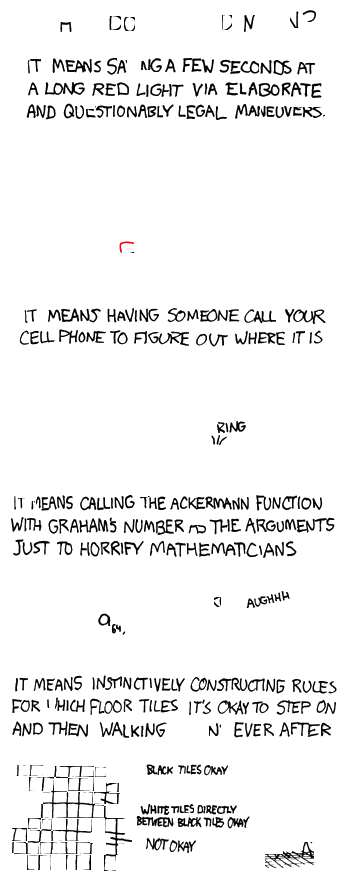 IT MEANS A FEW SECONDS AT
A LONG RED LIGHT VIA ELABORATE
AND QUESTIONABLY LEGAL MANEUVERS.
IT MEANS HAVING SOMEONE CALL YOUR
CELL PHONE TO FIGURE OUT WHERE IT IS
RING
IT MEANS CALLING THE ACKERMANN FUNCTION
WITH GRAHAM'S NUMBER THE ARGUMENTS
JUST TO HORRIFY MATHEMATICIANS
AUGHHH
64,
IT MEANS INSTINCTIVELY CONSTRUCTING RULES
FOR FLOOR TILES IT'S OKAY TO STEP ON
AND THEN WALKING EVER AFTER
BLACK TILES OKAY
WHITE TILES DIRECTLY
BETWEEN BLACK TILES OKAY
NOT OKAY